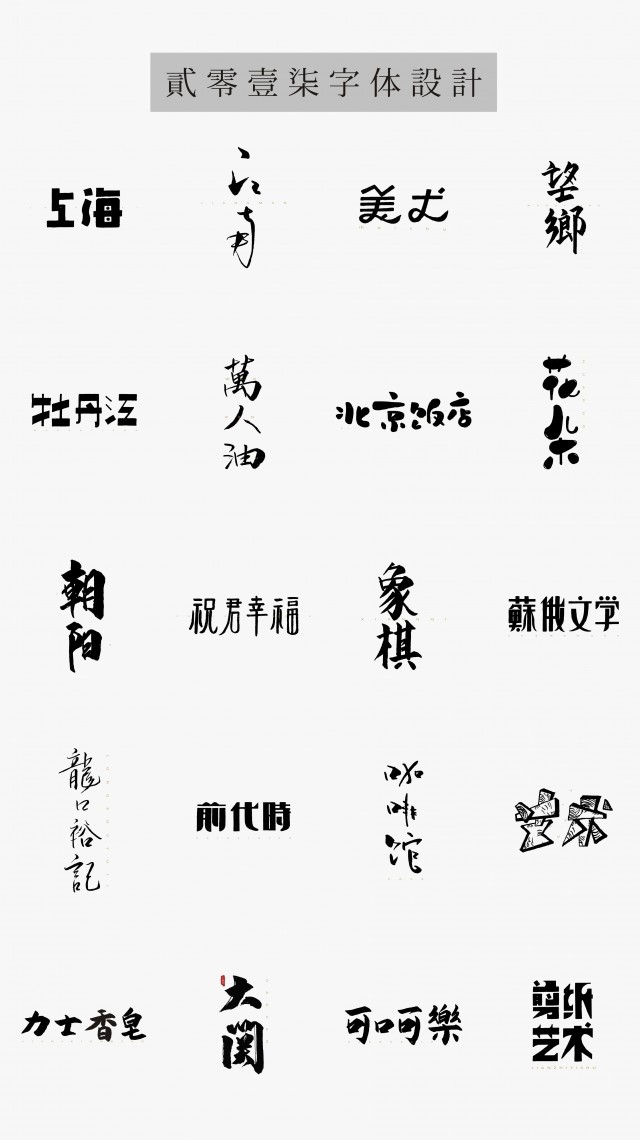 貳零壹柒字体設計
上海
江南
美尤
望鄉
牡丹江
萬人油
北京饭店
花朵
朝阳
祝君幸福
象棋
蘇俄文学
龍口裕記
前代時
咖啡馆
艺术
力士香皂
大関
可口可樂
剪纸
艺术